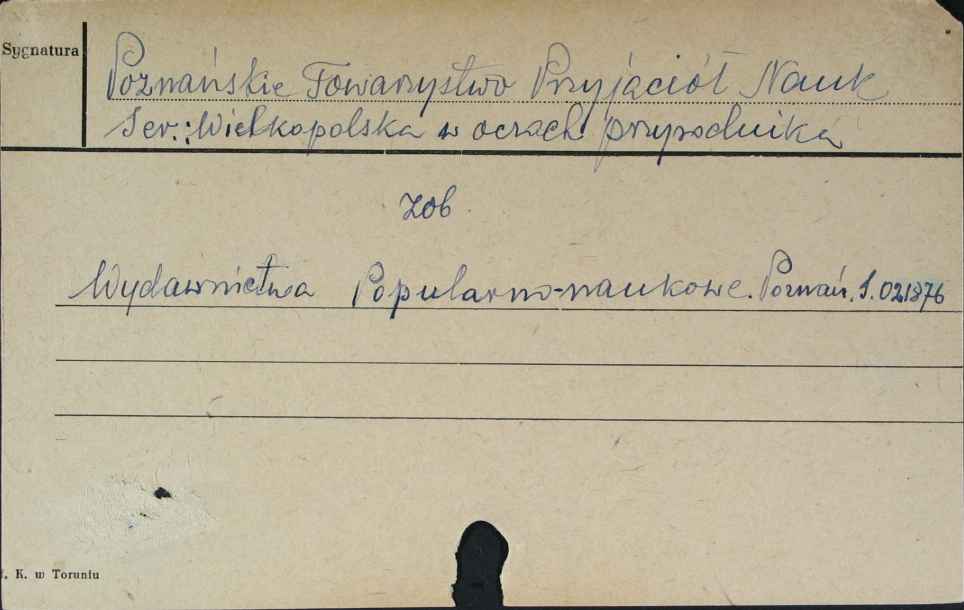 Sygnatura
Poznańskie Towarzystwo Przyjaciół Nauk
Ser.: Wielkopolska w oczach przyrodnika
zob
Wydawnictwa Popularno-naukowe. Poznań. S. 021876
K. w Toruniu